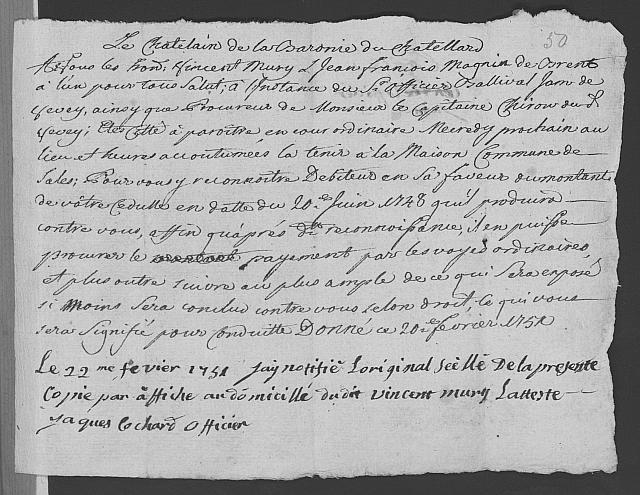 50
Le Chatelain de la Baronie du Chatellard
A Vous les hon: Vincent Mury & Jean François Magnin de Brent
à l'un pour tous Salut; à l'Instance du Sr. Officier Ballival Jam de
Vevey, ainsy que Procureur de Monsieur le Capitaine
Vevey; Etes Cité à paroître en cour ordinaire Mecredy prochain au
lieu et heures accoutumées la tenir à la Maison Commune de
Sales; Pour vous y reconnoître Debiteur en sa faveur du montant
de vôtre Cedulle en datte du 20e. Juin 1748 qu'il produira
contre vous, affin qu'aprés dte. reconnoissance, il en puisse
procurer le payement par les voyes ordinaires,
et plus outre suivre au plus ample de ce qui sera exposé
si moins sera conclud contre vous selon droit, ce qui vous
sera signifié pour conduitte Donné ce 20e fevrier 1751
Le 22me fevier 1751 Jay notifié Loriginal scéllé De la presente
Copie par affiche au domicille dudit vincent mury Latteste
Jaques Cochard Officier